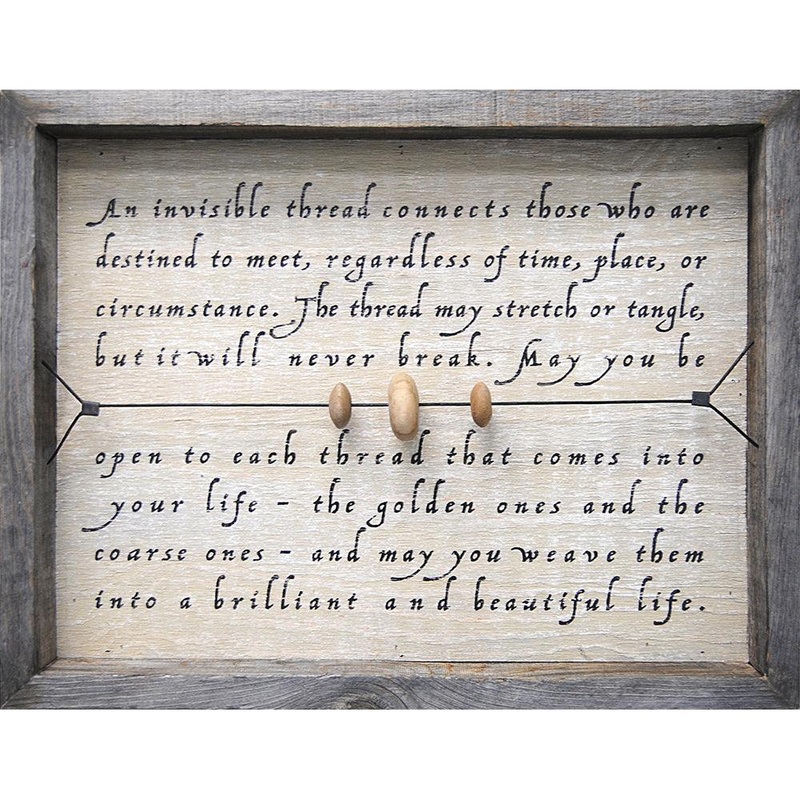 An invisible thread connects those who are
destined to meet, regardless of time, place, or
circumstance. The thread may stretch or tangle,
but it will never break. May you be
open to each thread that comes into
your life - the golden ones and the
coarse ones - and may you weave them
into a brilliant and beautiful life.